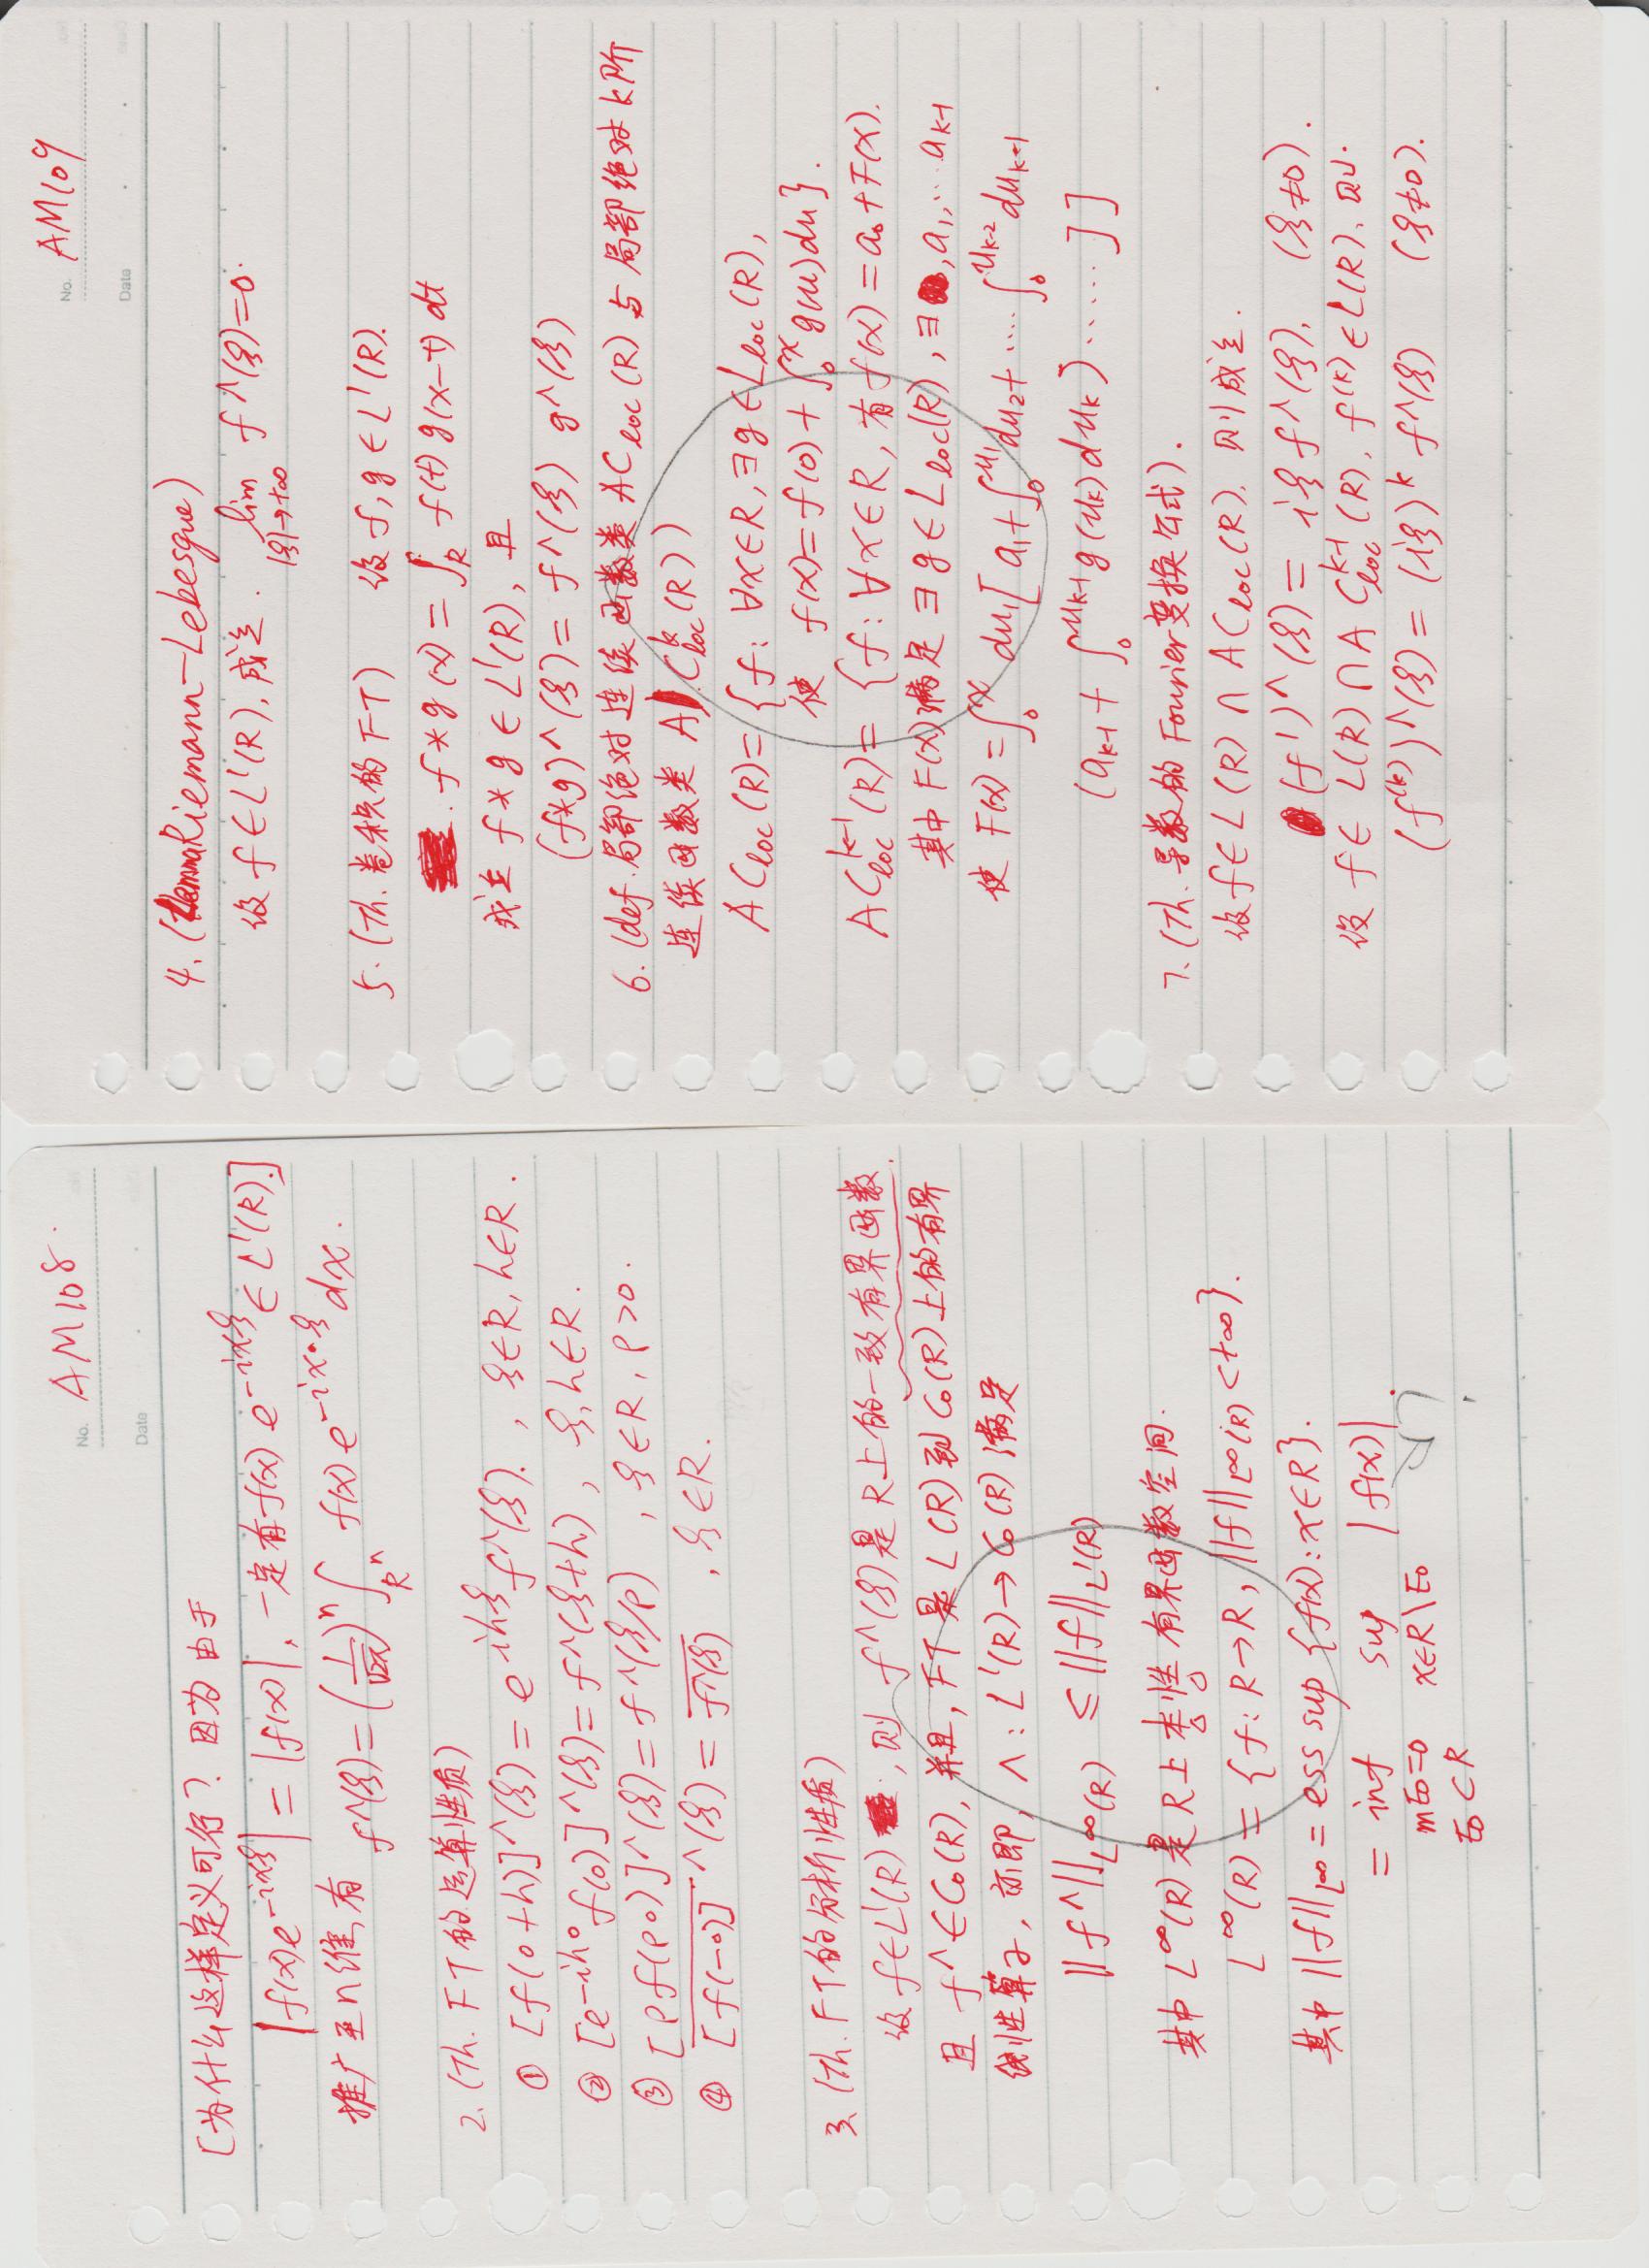 No. AM108.
Date
[为什么这样定义可行? 因为由于
|f(x)e^{-ixξ}| = |f(x)|, 一定有f(x) e^{-ixξ} ∈ L¹(R).]
推广至n维,有 f^(ξ)=(1/√2π)ⁿ ∫_{Rⁿ} f(x) e^{-ix·ξ} dx.
2. (Th. FT的运算性质)
① [f(∘+h)]^(ξ) = e^{ihξ} f^(ξ). , ξ∈R, h∈R.
② [e^{-ih∘} f(∘)]^(ξ) = f^(ξ+h) , ξ,h∈R.
③ [ρf(ρ∘)]^(ξ) = f^(ξ/ρ) , ξ∈R, ρ>0.
④ \overline{[f(-∘)]}^(ξ) = \overline{f^(ξ)} , ξ∈R.
3. (Th. FT的分析性质)
设f∈L¹(R) , 则 f^(ξ)是R上的一致有界函数
且 f^∈C₀(R), 并且, FT是L(R)到C₀(R)上的有界
线性算子, 亦即, ∧: L¹(R)→C₀(R) 满足
||f^||_{L^∞(R)} ≤ ||f||_{L¹(R)}
其中 L^∞(R)是R上本性有界函数空间.
L^∞(R) = {f: R→R, ||f||_{L^∞(R)} <+∞}.
其中 ||f||_{L^∞} = ess sup {f(x): x∈R}.
= inf sup |f(x)|.
mE₀=0 x∈R\E₀ ?
E₀⊂R
No. AM109
Date
4. (Lemma Riemann-Lebesgue)
设 f∈L¹(R), 成立. lim f^(ξ)=0.
|ξ|→+∞
5. (Th. 卷积的FT) 设 f, g∈L¹(R).
. f*g(x) = ∫_R f(t) g(x-t) dt
成立 f*g ∈ L¹(R), 且
(f*g)^(ξ) = f^(ξ) g^(ξ)
6. (def. 局部绝对连续函数类 AC_{loc}(R) 与 局部绝对k阶
连续函数类 AC^k_{loc}(R))
AC_{loc}(R) = {f: ∀x∈R, ∃g∈L_{loc}(R),
使 f(x)=f(0)+∫₀^x g(u)du}.
AC^{k-1}_{loc}(R) = {f: ∀x∈R, 有f(x)=a₀+F(x).
其中 F(x)满足 ∃g∈L_{loc}(R), ∃ , a₁,...a_{k-1}
使 F(x) = ∫₀^x du₁[a₁+∫₀^{u₁}du₂+....∫₀^{u_{k-2}} du_{k-1}
(a_{k-1} + ∫₀^{u_{k-1}} g(u_k)du_k).....]]
7. (Th. 导数的Fourier变换公式).
设f∈L(R)∩AC_{loc}(R). 则成立.
(f')^(ξ) = iξ f^(ξ). (ξ≠0).
设 f∈L(R)∩AC^{k-1}_{loc}(R), f^{(k)}∈L(R), 则.
(f^{(k)})^(ξ) = (iξ)^k f^(ξ) (ξ≠0).